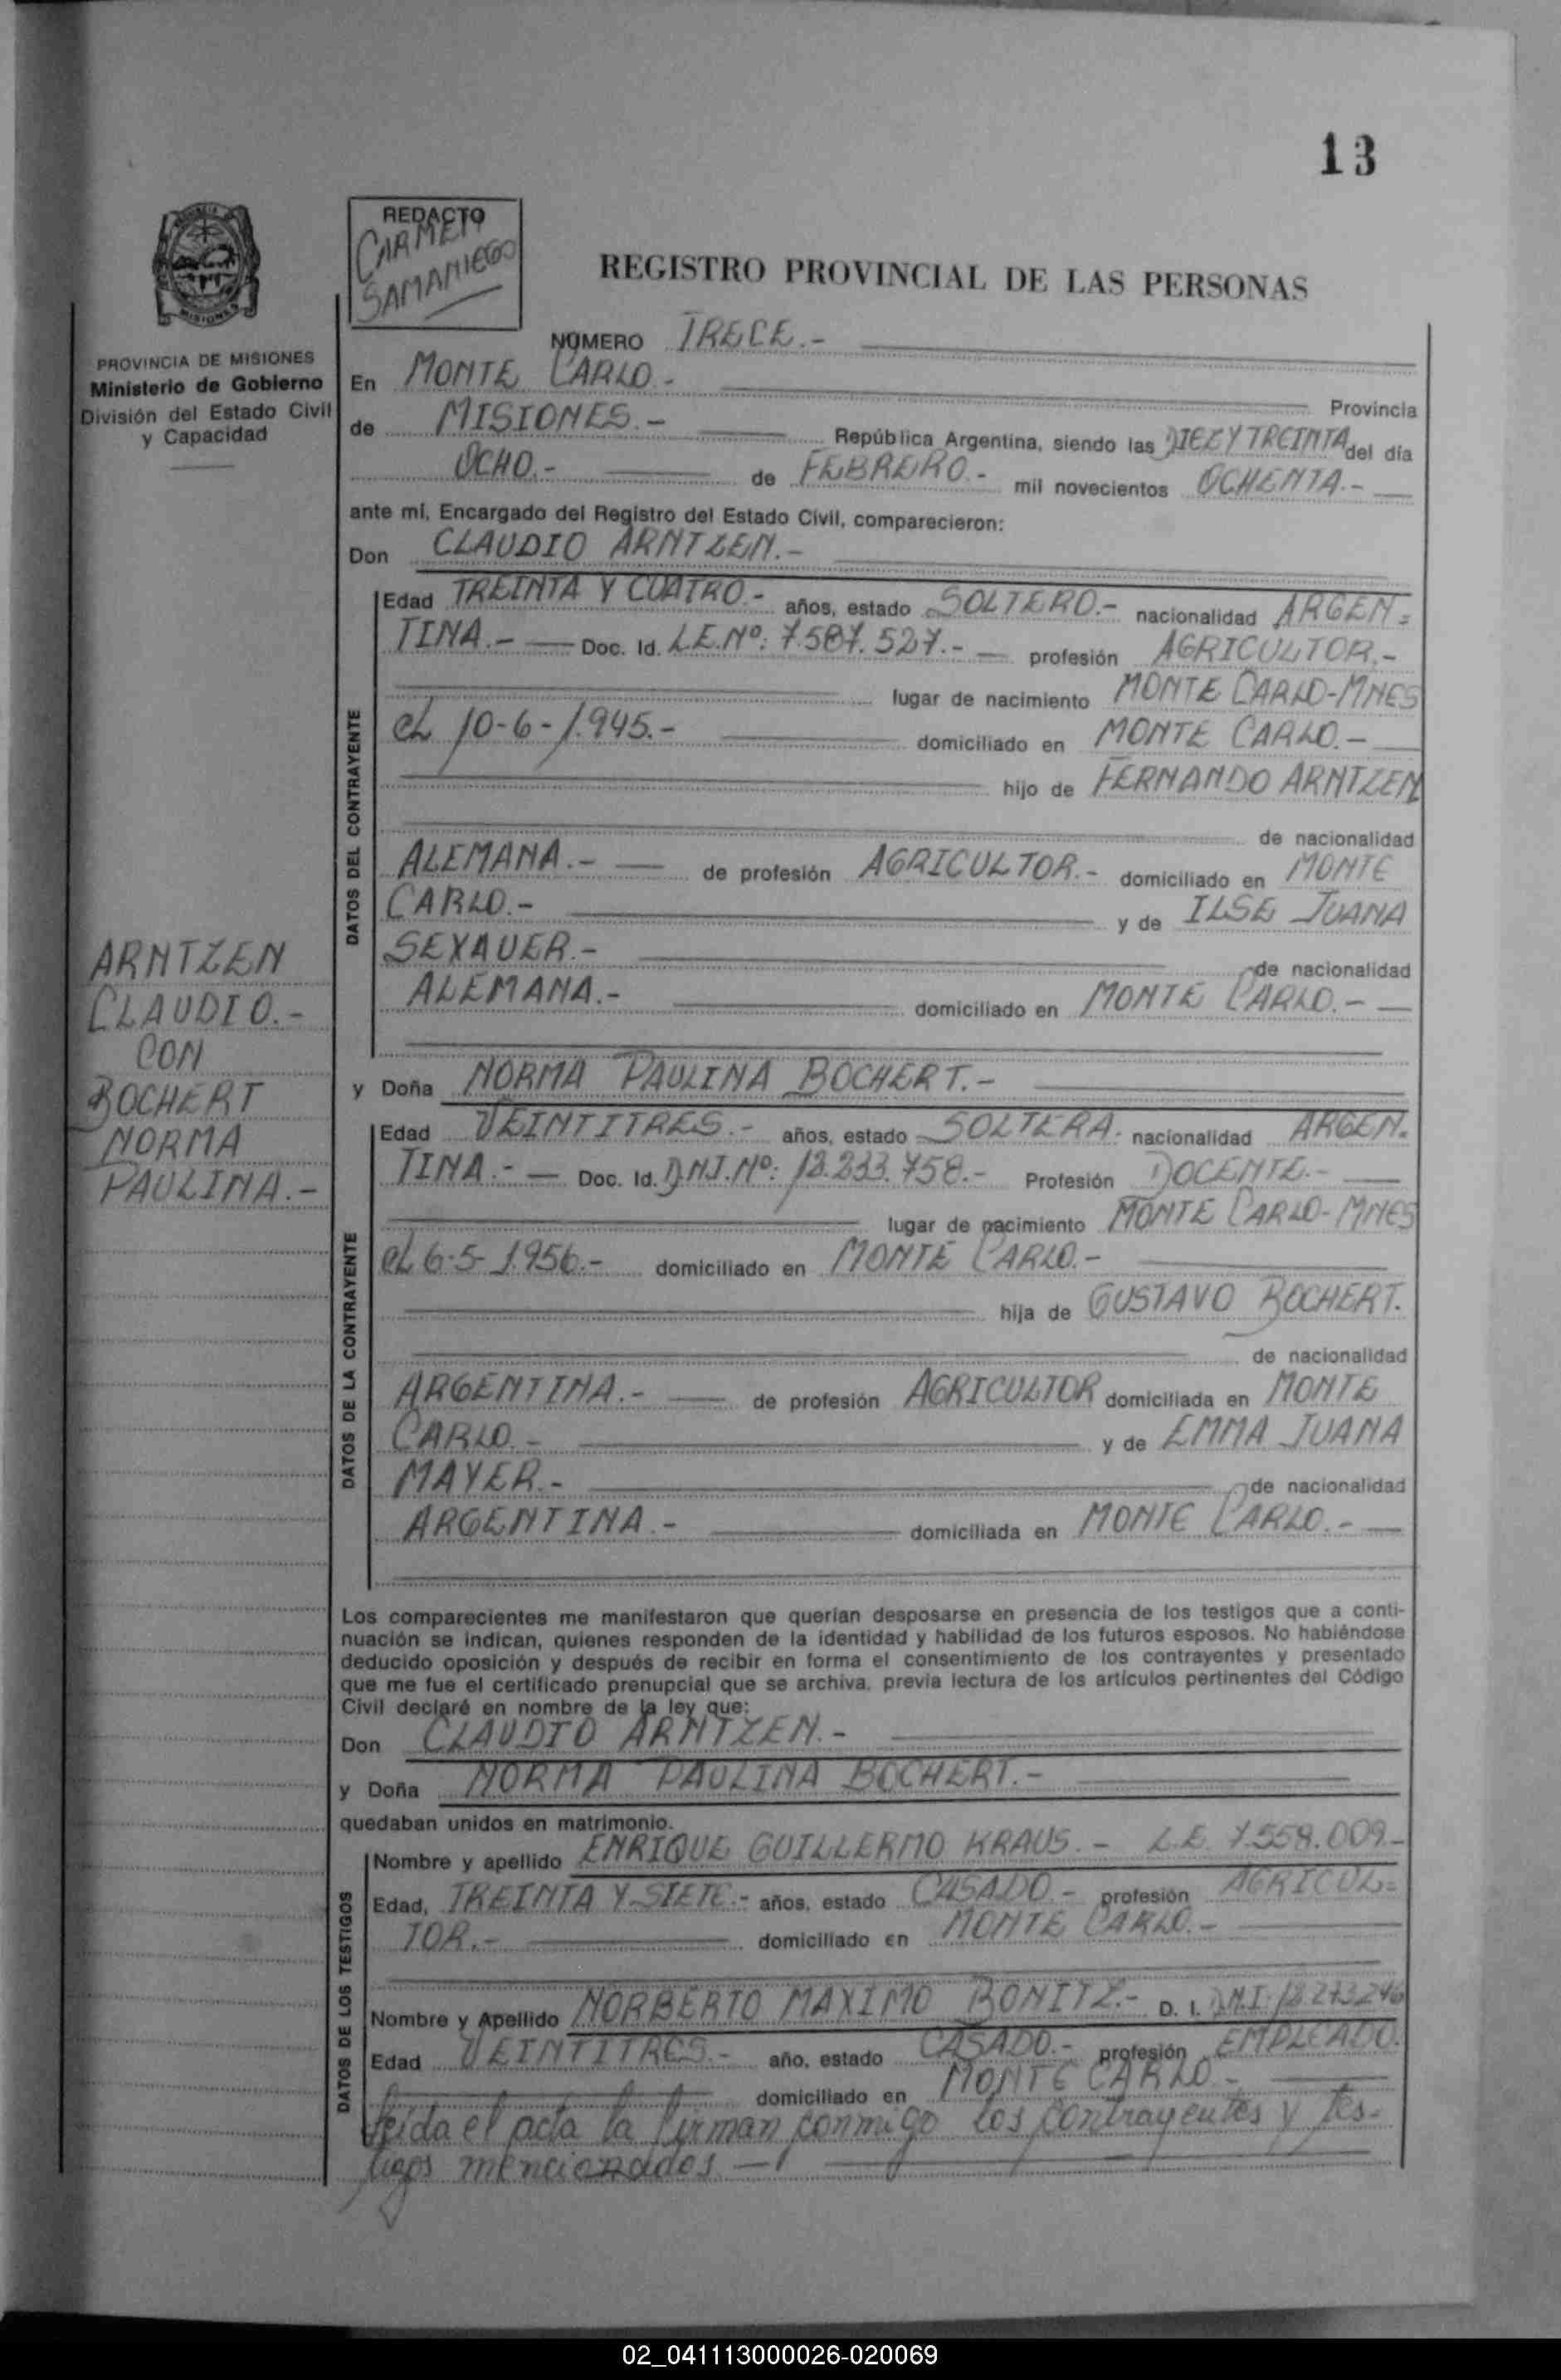 13
REDACTO
CARMEN
SAMANIEGO
REGISTRO PROVINCIAL DE LAS PERSONAS
MISIONES
PROVINCIA DE MISIONES
Ministerio de Gobierno
División del Estado Civil
y Capacidad
NUMERO TRECE.-
En MONTE CARLO.-
Provincia
de MISIONES.- República Argentina, siendo las DIEZ Y TREINTA del día
OCHO.- de FEBRERO.- mil novecientos OCHENTA.-
ante mí, Encargado del Registro del Estado Civil, comparecieron:
Don CLAUDIO ARNTZEN.-
DATOS DEL CONTRAYENTE
Edad TREINTA Y CUATRO.- años, estado SOLTERO.- nacionalidad ARGEN=
TINA.- Doc. Id. L.E.Nº: 7.587.527.- profesión AGRICULTOR.-
lugar de nacimiento MONTE CARLO-MNES
el 10-6-1.945.- domiciliado en MONTE CARLO.-
hijo de FERNANDO ARNTZEN
de nacionalidad
ALEMANA.- de profesión AGRICULTOR.- domiciliado en MONTE
CARLO.- y de ILSE JUANA
SEXAUER.- de nacionalidad
ALEMANA.- domiciliado en MONTE CARLO.-
ARNTZEN
CLAUDIO.-
CON
BOCHERT
NORMA
PAULINA.-
y Doña NORMA PAULINA BOCHERT.-
DATOS DE LA CONTRAYENTE
Edad VEINTITRES.- años, estado SOLTERA. nacionalidad ARGEN.
TINA.- Doc. Id. D.N.I.Nº: 12.233.758.- Profesión DOCENTE.-
lugar de nacimiento MONTE CARLO-MNES
el 6-5-1.956.- domiciliado en MONTE CARLO.-
hija de GUSTAVO BOCHERT.
de nacionalidad
ARGENTINA.- de profesión AGRICULTOR domiciliada en MONTE
CARLO.- y de EMMA JUANA
MAYER.- de nacionalidad
ARGENTINA.- domiciliada en MONTE CARLO.-
Los comparecientes me manifestaron que querían desposarse en presencia de los testigos que a conti-
nuación se indican, quienes responden de la identidad y habilidad de los futuros esposos. No habiéndose
deducido oposición y después de recibir en forma el consentimiento de los contrayentes y presentado
que me fue el certificado prenupcial que se archiva, previa lectura de los artículos pertinentes del Código
Civil declaré en nombre de la ley que:
Don CLAUDIO ARNTZEN.-
y Doña NORMA PAULINA BOCHERT.-
quedaban unidos en matrimonio.
DATOS DE LOS TESTIGOS
Nombre y apellido ENRIQUE GUILLERMO KRAUS.- L.E. 7.559.009.-
Edad, TREINTA Y SIETE.- años, estado CASADO.- profesión AGRICUL=
TOR.- domiciliado en MONTE CARLO.-
Nombre y Apellido NORBERTO MAXIMO BONITZ.- D. I. D.N.I. 12.273.246
Edad VEINTITRES.- año, estado CASADO.- profesión EMPLEADO.
domiciliado en MONTE CARLO.-
leida el acta la firman conmigo los contrayentes y tes-
tigos mencionados.-
02_041113000026-020069